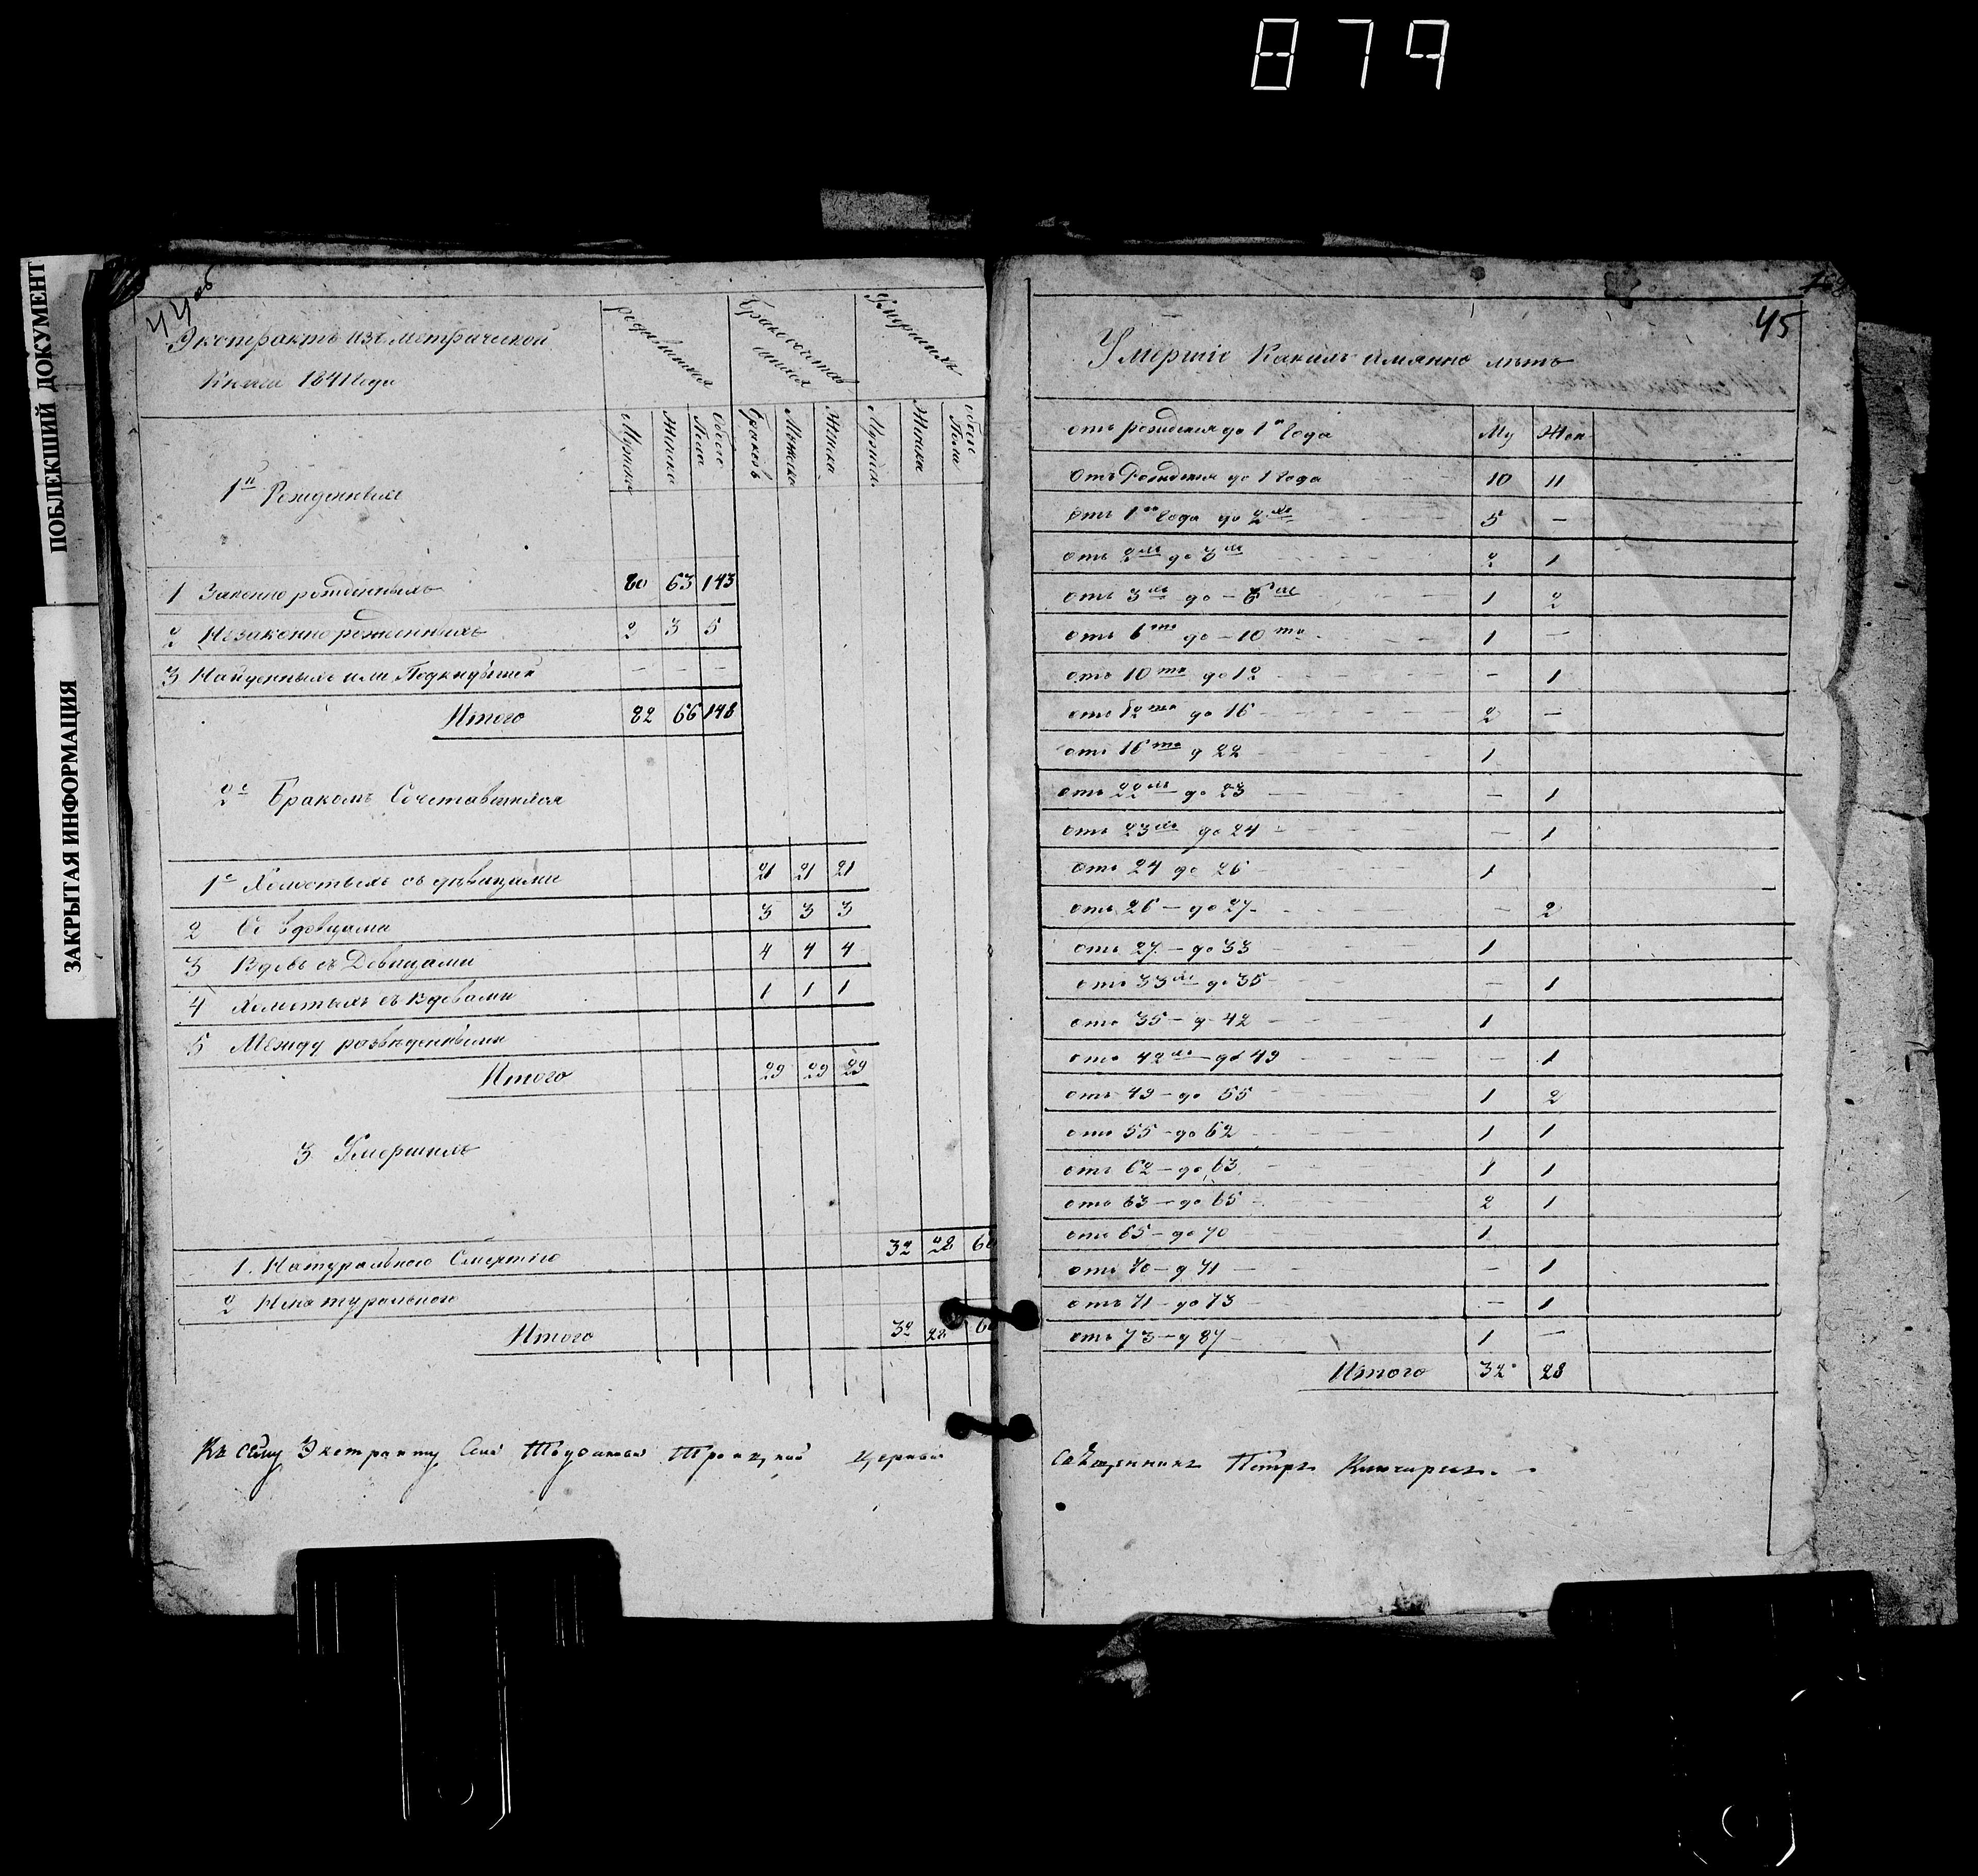 879
ПОБЛЕКШИЙ ДОКУМЕНТ
ЗАКРЫТАЯ ИНФОРМАЦИЯ
44 об
Экстрактъ изъ метрической
Книги 1841 года
родившихся
Бракосочетав
шихся
Умершихъ
Мужска
Женска
Обоего
Пола
Браковъ
Мужска
Женска
Мужска
Женска
обоего
Пола
1й Рожденныхъ
1 Законнорожденныхъ 80 63 143
2 Незаконнорожденныхъ 2 3 5
3 Найденныхъ или Подкидышей - - -
Итого 82 66 148
2е Бракомъ Сочетавшихся
1е Холостыхъ съ девицами 21 21 21
2 Со вдовцами 3 3 3
3 Вдовъ съ Девицами 4 4 4
4 Холостыхъ съ вдовами 1 1 1
5 Между разведенными
Итого 29 29 29
3 Умершихъ
1. Натуральною Смертію 32 28 60
2 Ненатуральною
Итого 32 28 60
Къ сему Экстракту Троицкой церкви
45
Умершіе Какихъ имянно летъ
отъ рождения до 1го Года Му Жен
Отъ Рождения до 1 Года 10 11
Отъ 1го Года до 2хъ 5 —
отъ 2хъ до 3хъ 2 1
отъ 3хъ до — 6 1 2
отъ 6ти до — 10ти 1 —
отъ 10ти до 12 - 1
отъ 12ти до 16 2 —
отъ 16ти д 22 1
отъ 22хъ до 23 — 1
отъ 23хъ до 24 — 1
отъ 24 до 26 1
отъ 26 — до 27 — 2
отъ 27 — до 33 1
отъ 33хъ до 35 — 1
отъ 35 — д 42 1
отъ 42хъ — до 49 — 1
отъ 49 — до 55 1 2
отъ 55 — до 62 1 1
отъ 62 — до 63 1 1
отъ 63 — до 65 2 1
отъ 65 — до 70 1
отъ 70 — д 71 — 1
отъ 71 — до 73 — 1
отъ 73 — д 87 1 —
Итого 32 28
Священникъ Петръ